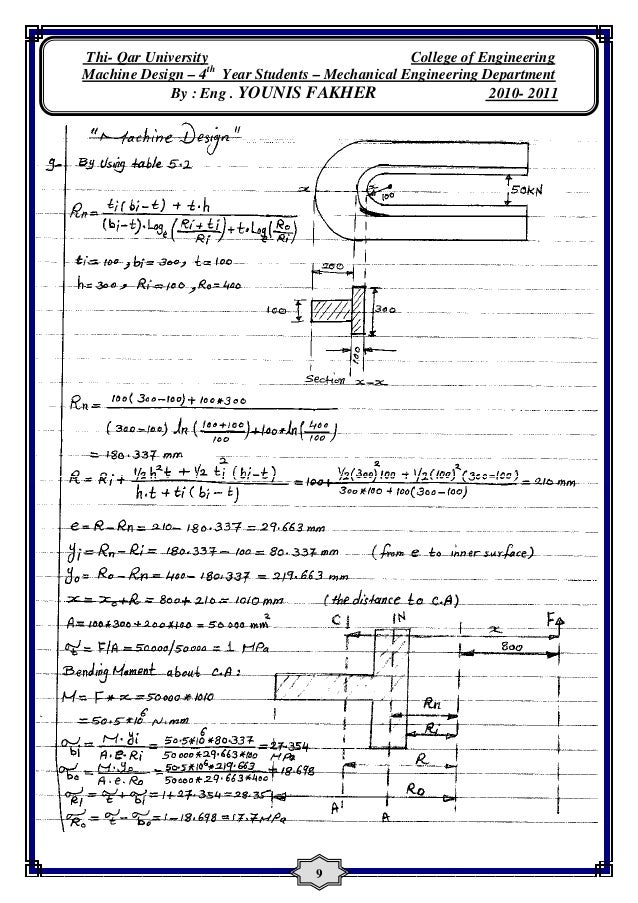 Thi- Qar University College of Engineering
Machine Design – 4th Year Students – Mechanical Engineering Department
By : Eng . YOUNIS FAKHER 2010- 2011
"Machine Design"
9- By Using table 5.2
Rn = ti(bi-t) + t·h / (bi-t)·Loge(Ri+ti/Ri) + t·Loge(Ro/Ri)
ti=100, bi=300, t=100
h=300, Ri=100, Ro=400
x x 100 50KN
200
100 300
100
Section x-x
Rn = 100(300-100)+100*300 / (300-100) ln(100+100/100)+100*ln(400/100)
= 180.337 mm
R = Ri + 1/2 h²t + 1/2 ti²(bi-t) / h.t + ti(bi-t) = 100+ 1/2(300)²100 + 1/2(100)²(300-100) / 300*100+100(300-100) = 210 mm
e = R-Rn = 210-180.337 = 29.663 mm
yi = Rn-Ri = 180.337-100 = 80.337 mm (from e to inner surface)
yo = Ro-Rn = 400-180.337 = 219.663 mm
x = xo+R = 800+210 = 1010 mm (the distance to C.A)
A = 100*300+200*100 = 50 000 mm² C N F
σt = F/A = 50000/50000 = 1 MPa x
800
Bending Moment about C.A:
M = F*x = 50000*1010
Rn
= 50.5*10⁶ N.mm
Ri
σbi = M.yi/A.e.Ri = 50.5*10⁶*80.337/50000*29.663*100 = 27.354 MPa
R
σbo = M.yo/A.e.Ro = 50.5*10⁶*219.663/50000*29.663*400 = 18.698
Ro
σRi = σt + σbi = 1+27.354 = 28.35
A' A
σRo = σt - σbo = 1-18.698 = 17.7 MPa
9